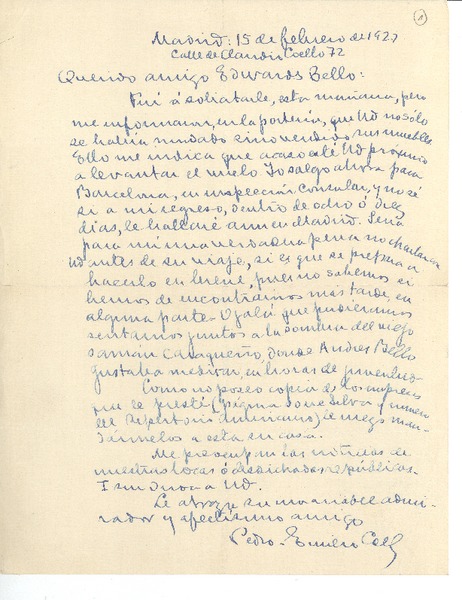 1
Madrid: 15 de febrero de 1927
Calle de Claudio Coello 72
Querido amigo Edwards Bello:
Fuí á solicitarle, esta mañana, pero
me informaron, en la portería, que Ud no sólo
se había mudado sino vendido sus muebles
Ello me indica que acaso esté Ud próximo
a levantar el vuelo Yo salgo ahora para
Barcelona, en inspección Consular, y no sé
si a mi regreso, dentro de ocho ó diez
días, le hallaré aun en Madrid. Sería
para mí una verdadera pena no charlar con
Ud antes de su viaje, si es que se prepara a
hacerlo en breve, pues no sabemos si
hemos de encontrarnos más tarde, en
alguna parte. Ojalá que pudiéramos
sentarnos juntos a la sombra del viejo
samán Caraqueño, donde Andrés Bello
gustaba meditar, en horas de juventud.
Como no poseo copia de los impresos
que le presté (página sobre Silva y número
del Repertorio Americano) le ruego man-
dármelos a esta su casa.
Me preocupan las noticias de
nuestras locas ó desdichadas repúblicas.
Y un a Ud.
Le abraza su invariable admi-
rador y afectísimo amigo
Pedro-Emilio Coll